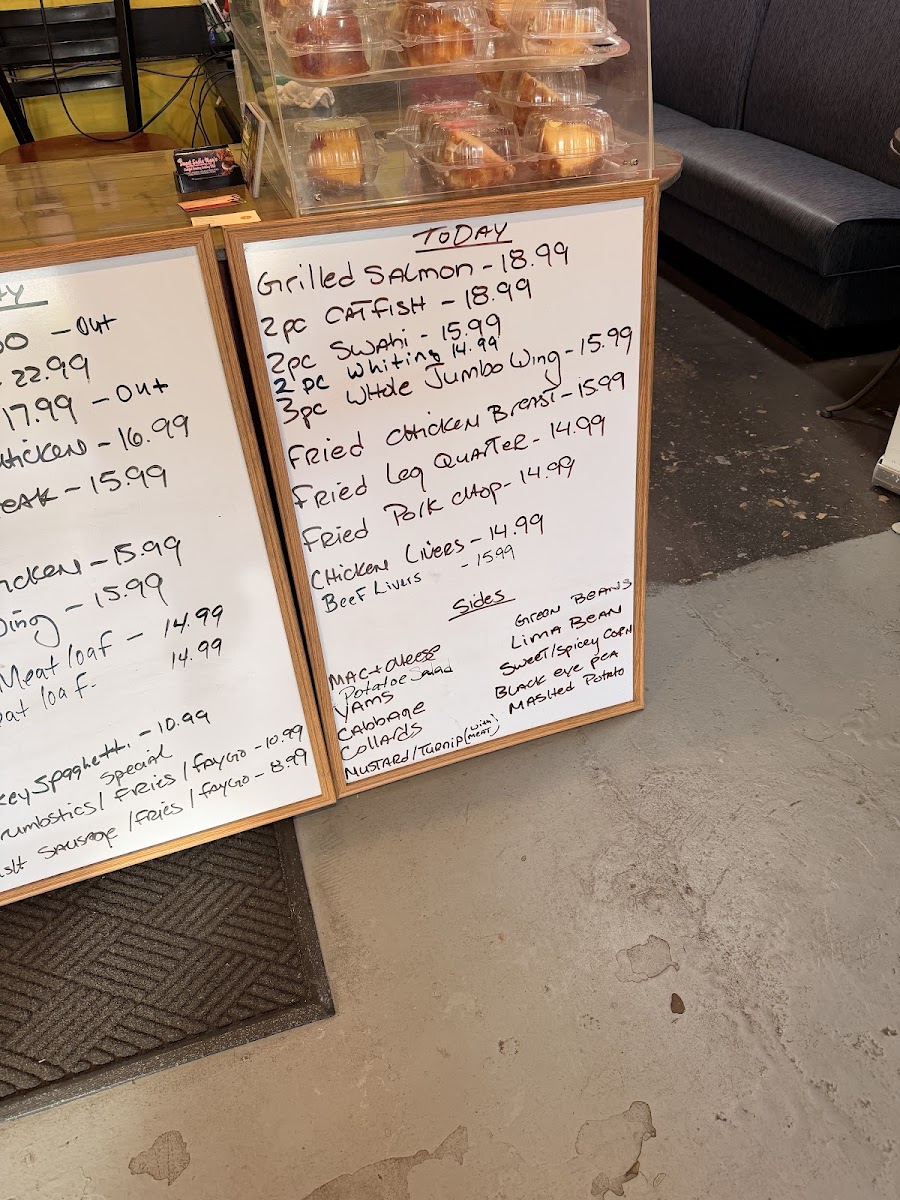 - Out
22.99
17.99 - Out
- 16.99
- 15.99
- 15.99
- 15.99
Meat loaf - 14.99
loaf - 14.99
Spaghetti - 10.99
Special
/ Fries / FAYGO - 10.99
SAUSAGE / FRIES / FAYGO - 8.99
TODAY
Grilled SALMON - 18.99
2pc CATFISH - 18.99
2pc SWAhi - 15.99
2 pc Whiting 14.99
3pc WHOLE Jumbo Wing - 15.99
FRIED CHICKEN BREAST - 15.99
FRIED Leg QUARTER - 14.99
FRIED PORK CHOP - 14.99
CHICKEN LIVERS - 14.99
BEEF LIVERS - 15.99
Sides
MAC + CHEESE
Potatoe Salad
YAMS
CABBAGE
COLLARDS
MUSTARD / TURNIP (WITH MEAT)
GREEN BEANS
LIMA BEAN
SWEET/SPICEY CORN
BLACK EYE PEA
MASHED POTATO